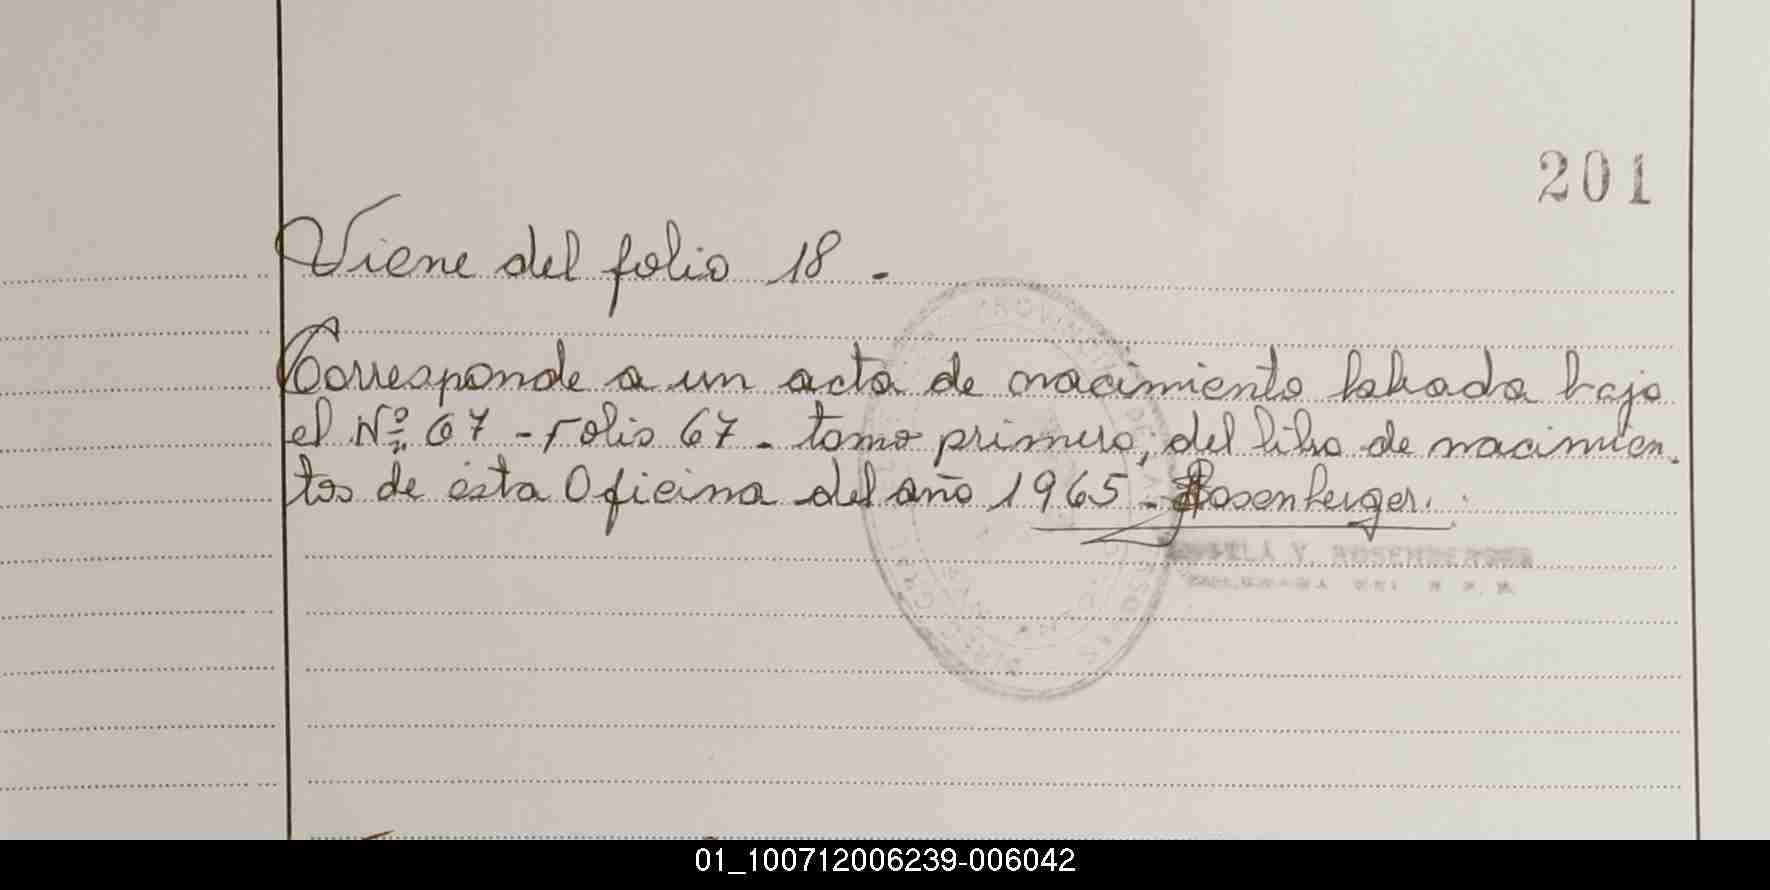 201
Viene del folio 18.-
Corresponde a un acta de nacimiento labrada bajo
el Nº 67 - Folio 67 - tomo primero, del libro de nacimien-
tos de ésta Oficina del año 1965 - Rosenberger.
PROVINCIA DE
V. ROSENBERGER
01_100712006239-006042